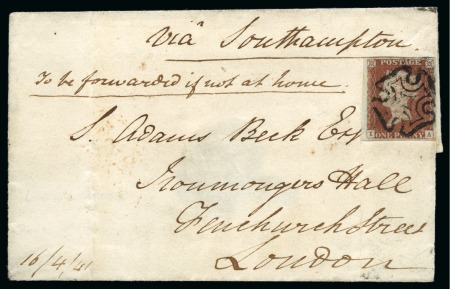 via Southampton.
To be forwarded if not at home.
POSTAGE
S. Adams Beck Esq
ONE PENNY A
Ironmongers Hall
Fenchurch Street
London
16/4/41